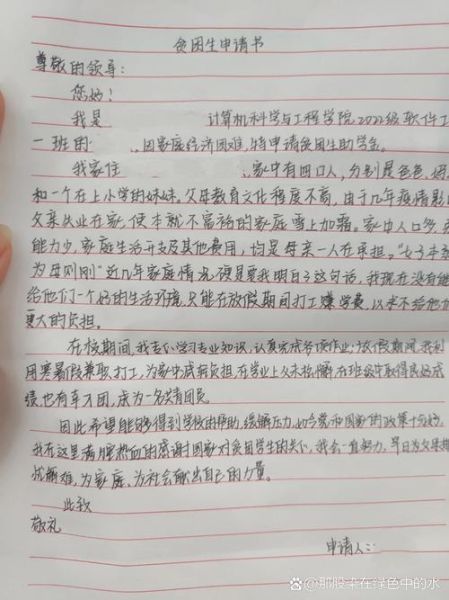 贫困生申请书
尊敬的领导：
您好！
我是 计算机科学与工程学院2022级软件工
一班的 ，因家庭经济困难，特申请贫困生助学金。
我家住 ，家中有四口人，分别是爸爸，妈
和一个在上小学的妹妹。父母教育文化程度不高，由于几年疫情影
父亲从业在家，使本就不富裕的家庭雪上加霜。家中人口多，
能力少，家庭生活开支及其他费用，均是母亲一人在承担。“女子本
为母则刚”近几年家庭情况，硬是要我明白了这句话，我现在没有
给他们一个好的生活环境，只能在放假期间打工赚学费，以求不给他
更大的负担。
在校期间，我专心学习专业知识，认真完成各项作业；放假期间，我利
用寒暑假兼职打工，为家中减轻负担，在学业上久未松懈，在班级中取得良好成
绩也有幸入团，成为一名共青团员。
因此希望能够得到学校的帮助，缓解压力，
我在这里满腔热血的感谢国家对贫困学生的关心，我会一直努力，早日为父母排
忧解难，为家庭、为社会献出自己的力量。
此致
敬礼
申请人：
@那股柒在绿色中的水